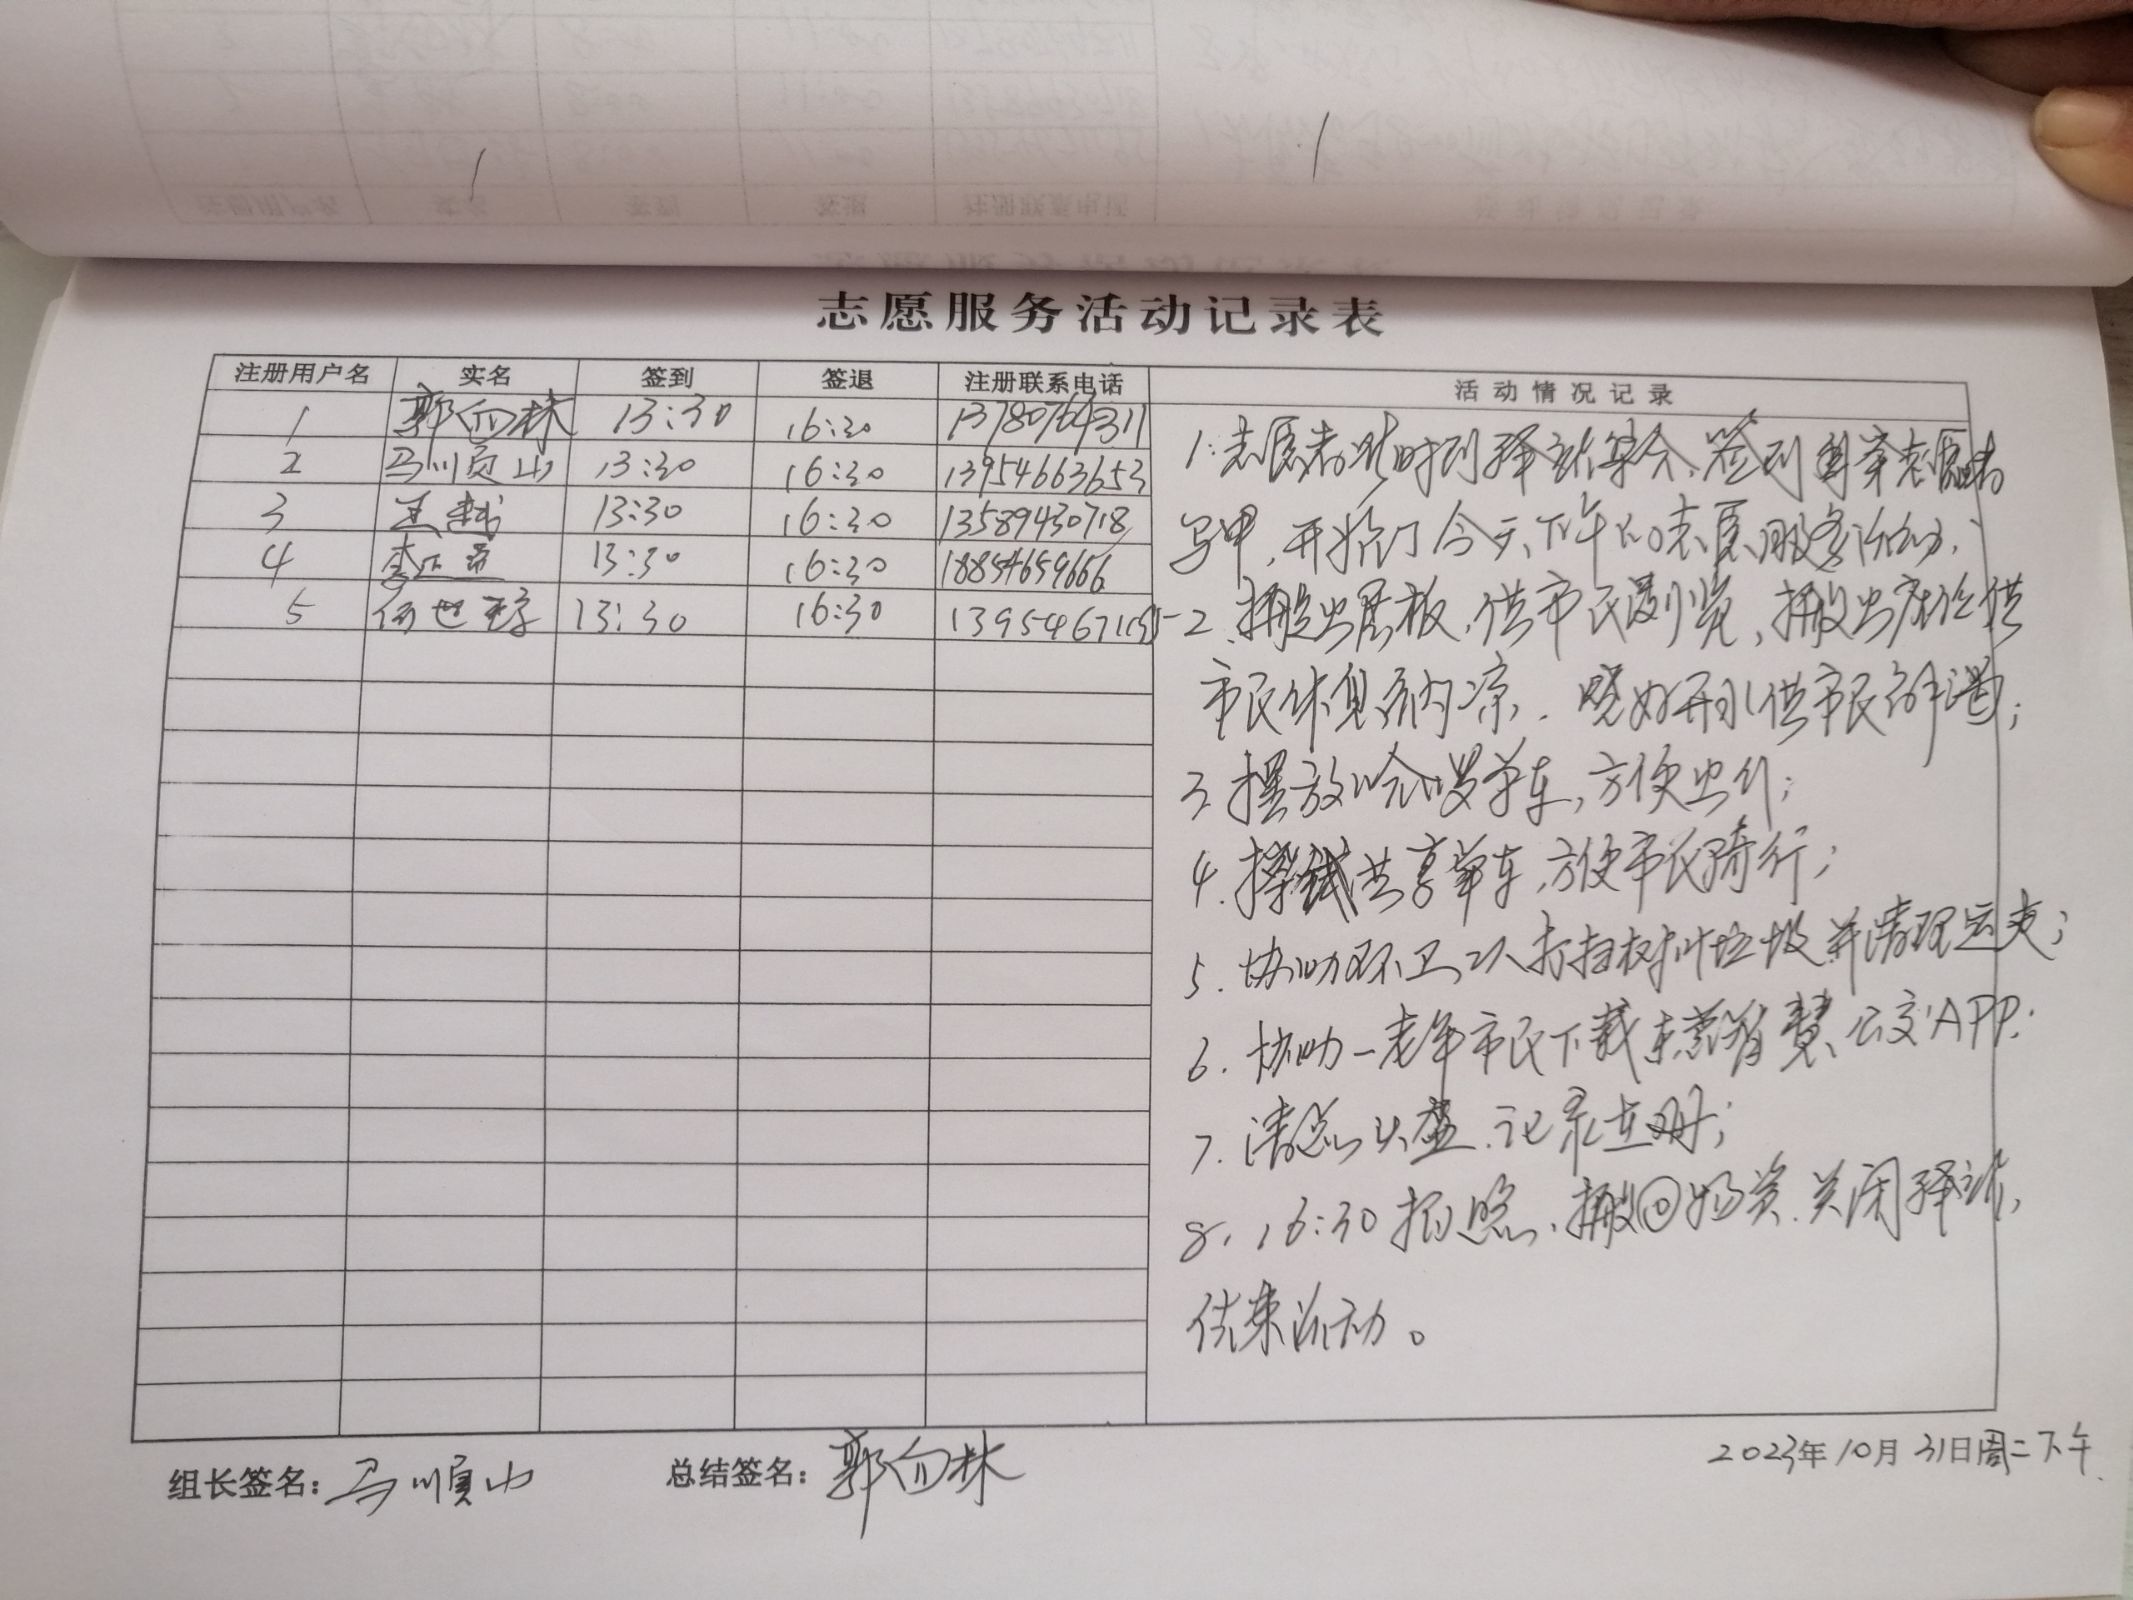 志愿服务活动记录表
注册用户名 实名 签到 签退 注册联系电话 活动情况记录
1 郭向林 13:30 16:30 13780764311
2 马顺山 13:30 16:30 13954663653
3 13:30 16:30 13589430718
4 13:30 16:30 18854659666
5 13:30 16:30
1.志愿者准时到驿站集合、签到自穿志愿者
马甲,开始了今天下午的志愿服务活动;
2.搬出展板,供市民浏览,搬出座位供
市民休息纳凉.烧好开水供市民解渴;
3.摆放哈啰单车,方便出行;
4.擦拭共享单车,方便市民骑行;
5.协助环卫工人打扫树叶垃圾并清理运走;
6.协助一老年市民下载东营智慧公交APP;
7.清点,记录在册;
8.16:30拍照、搬回物资、关闭驿站,
结束活动。
组长签名: 马顺山 总结签名: 郭向林 2023年10月31日周二下午